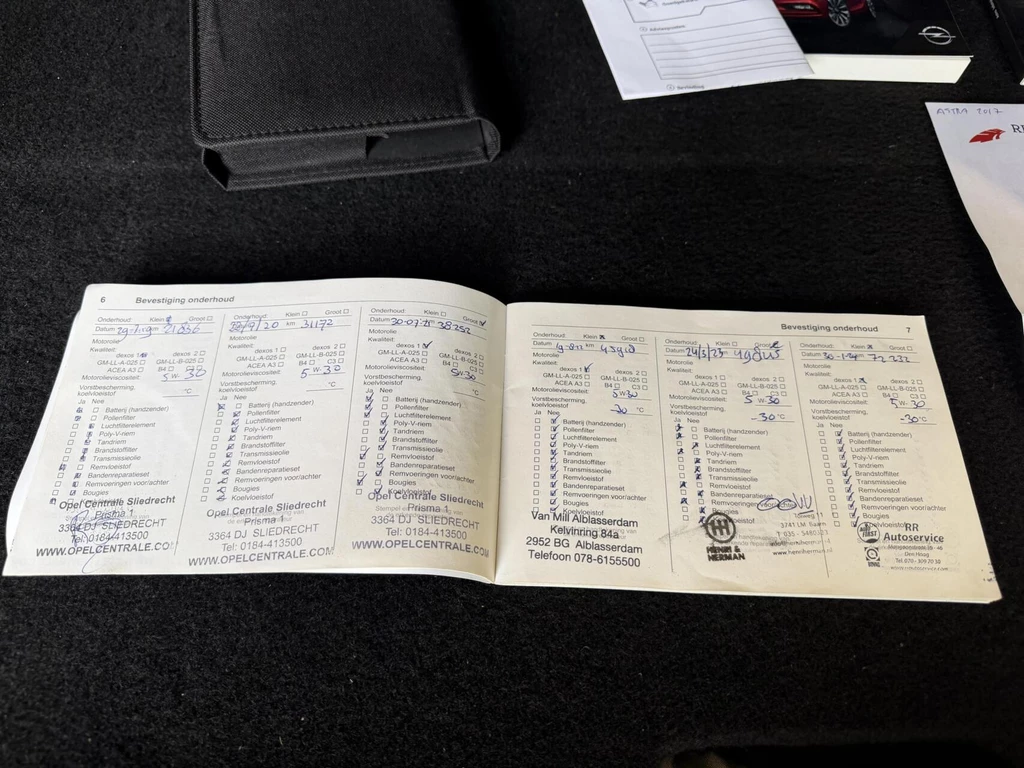 ASTRA 2017
6 Bevestiging onderhoud
Onderhoud: Klein Groot
Datum 29-7-19 km 21836
Motorolie
Kwaliteit:
dexos 1 dexos 2
GM-LL-A-025 GM-LL-B-025
ACEA A3 B4 C3
Motorolieviscositeit: 5 W-30
Vorstbescherming,
koelvloeistof °C
Ja Nee
Batterij (handzender)
Pollenfilter
Luchtfilterelement
Poly-V-riem
Tandriem
Brandstoffilter
Transmissieolie
Remvloeistof
Bandenreparatieset
Remvoeringen voor/achter
Bougies
Opel Centrale Sliedrecht
Prisma 1
3364 DJ SLIEDRECHT
Tel: 0184-413500
WWW.OPELCENTRALE.CO
Onderhoud: Klein Groot
/9/20 km 31172
Motorolie
Kwaliteit:
dexos 1 dexos 2
GM-LL-A-025 GM-LL-B-025
ACEA A3 B4 C3
Motorolieviscositeit: 5 W-30
Vorstbescherming,
koelvloeistof °C
Ja Nee
Batterij (handzender)
Pollenfilter
Luchtfilterelement
Poly-V-riem
Tandriem
Brandstoffilter
Transmissieolie
Remvloeistof
Bandenreparatieset
Remvoeringen voor/achter
Bougies
Koelvloeistof
Opel Centrale Sliedrecht
Prisma 1
3364 DJ SLIEDRECHT
Tel: 0184-413500
WWW.OPELCENTRALE.COM
Onderhoud: Klein Groot
Datum 30-07-21 38252
Motorolie
Kwaliteit:
dexos 1 dexos 2
GM-LL-A-025 GM-LL-B-025
ACEA A3 B4 C3
Motorolieviscositeit: 5W-30
Vorstbescherming,
koelvloeistof °C
Ja Nee
Batterij (handzender)
Pollenfilter
Luchtfilterelement
Poly-V-riem
Tandriem
Brandstoffilter
Transmissieolie
Remvloeistof
Bandenreparatieset
Remvoeringen voor/achter
Bougies
Koelvloeistof
Opel Centrale Sliedrecht
Prisma 1
3364 DJ SLIEDRECHT
Tel: 0184-413500
WWW.OPELCENTRALE.COM
Bevestiging onderhoud 7
Onderhoud: Klein Groot
Datum km
Motorolie
Kwaliteit:
dexos 1 dexos 2
GM-LL-A-025 GM-LL-B-025
ACEA A3 B4 C3
Motorolieviscositeit: 5 W-30
Vorstbescherming,
koelvloeistof -30 °C
Ja Nee
Batterij (handzender)
Pollenfilter
Luchtfilterelement
Poly-V-riem
Tandriem
Brandstoffilter
Transmissieolie
Remvloeistof
Bandenreparatieset
Remvoeringen voor/achter
Bougies
Koelvloeistof
Van Mill Alblasserdam
Kelvinring 84a
2952 BG Alblasserdam
Telefoon 078-6155500
Onderhoud: Klein Groot
Datum 24/3/23
Motorolie
Kwaliteit:
dexos 1 dexos 2
GM-LL-A-025 GM-LL-B-025
ACEA A3 B4 C3
Motorolieviscositeit: 5 W-30
Vorstbescherming,
koelvloeistof -30 °C
Ja Nee
Batterij (handzender)
Pollenfilter
Luchtfilterelement
Poly-V-riem
Tandriem
Brandstoffilter
Transmissieolie
Remvloeistof
Bandenreparatieset
Remvoeringen voor/achter
Bougies
Koelvloeistof
HENRI &
HERMAN
3741 LM Baarn
Onderhoud: Klein Groot
Datum 30-1-24 72232
Motorolie
Kwaliteit:
dexos 1 dexos 2
GM-LL-A-025 GM-LL-B-025
ACEA A3 B4 C3
Motorolieviscositeit: 5 W-30
Vorstbescherming,
koelvloeistof -30 °C
Ja Nee
Batterij (handzender)
Pollenfilter
Luchtfilterelement
Poly-V-riem
Tandriem
Brandstoffilter
Transmissieolie
Remvloeistof
Bandenreparatieset
Remvoeringen voor/achter
Bougies
Koelvloeistof
RR
Autoservice
Den Haag
Tel. 070 - 309 20 38
BOVAG